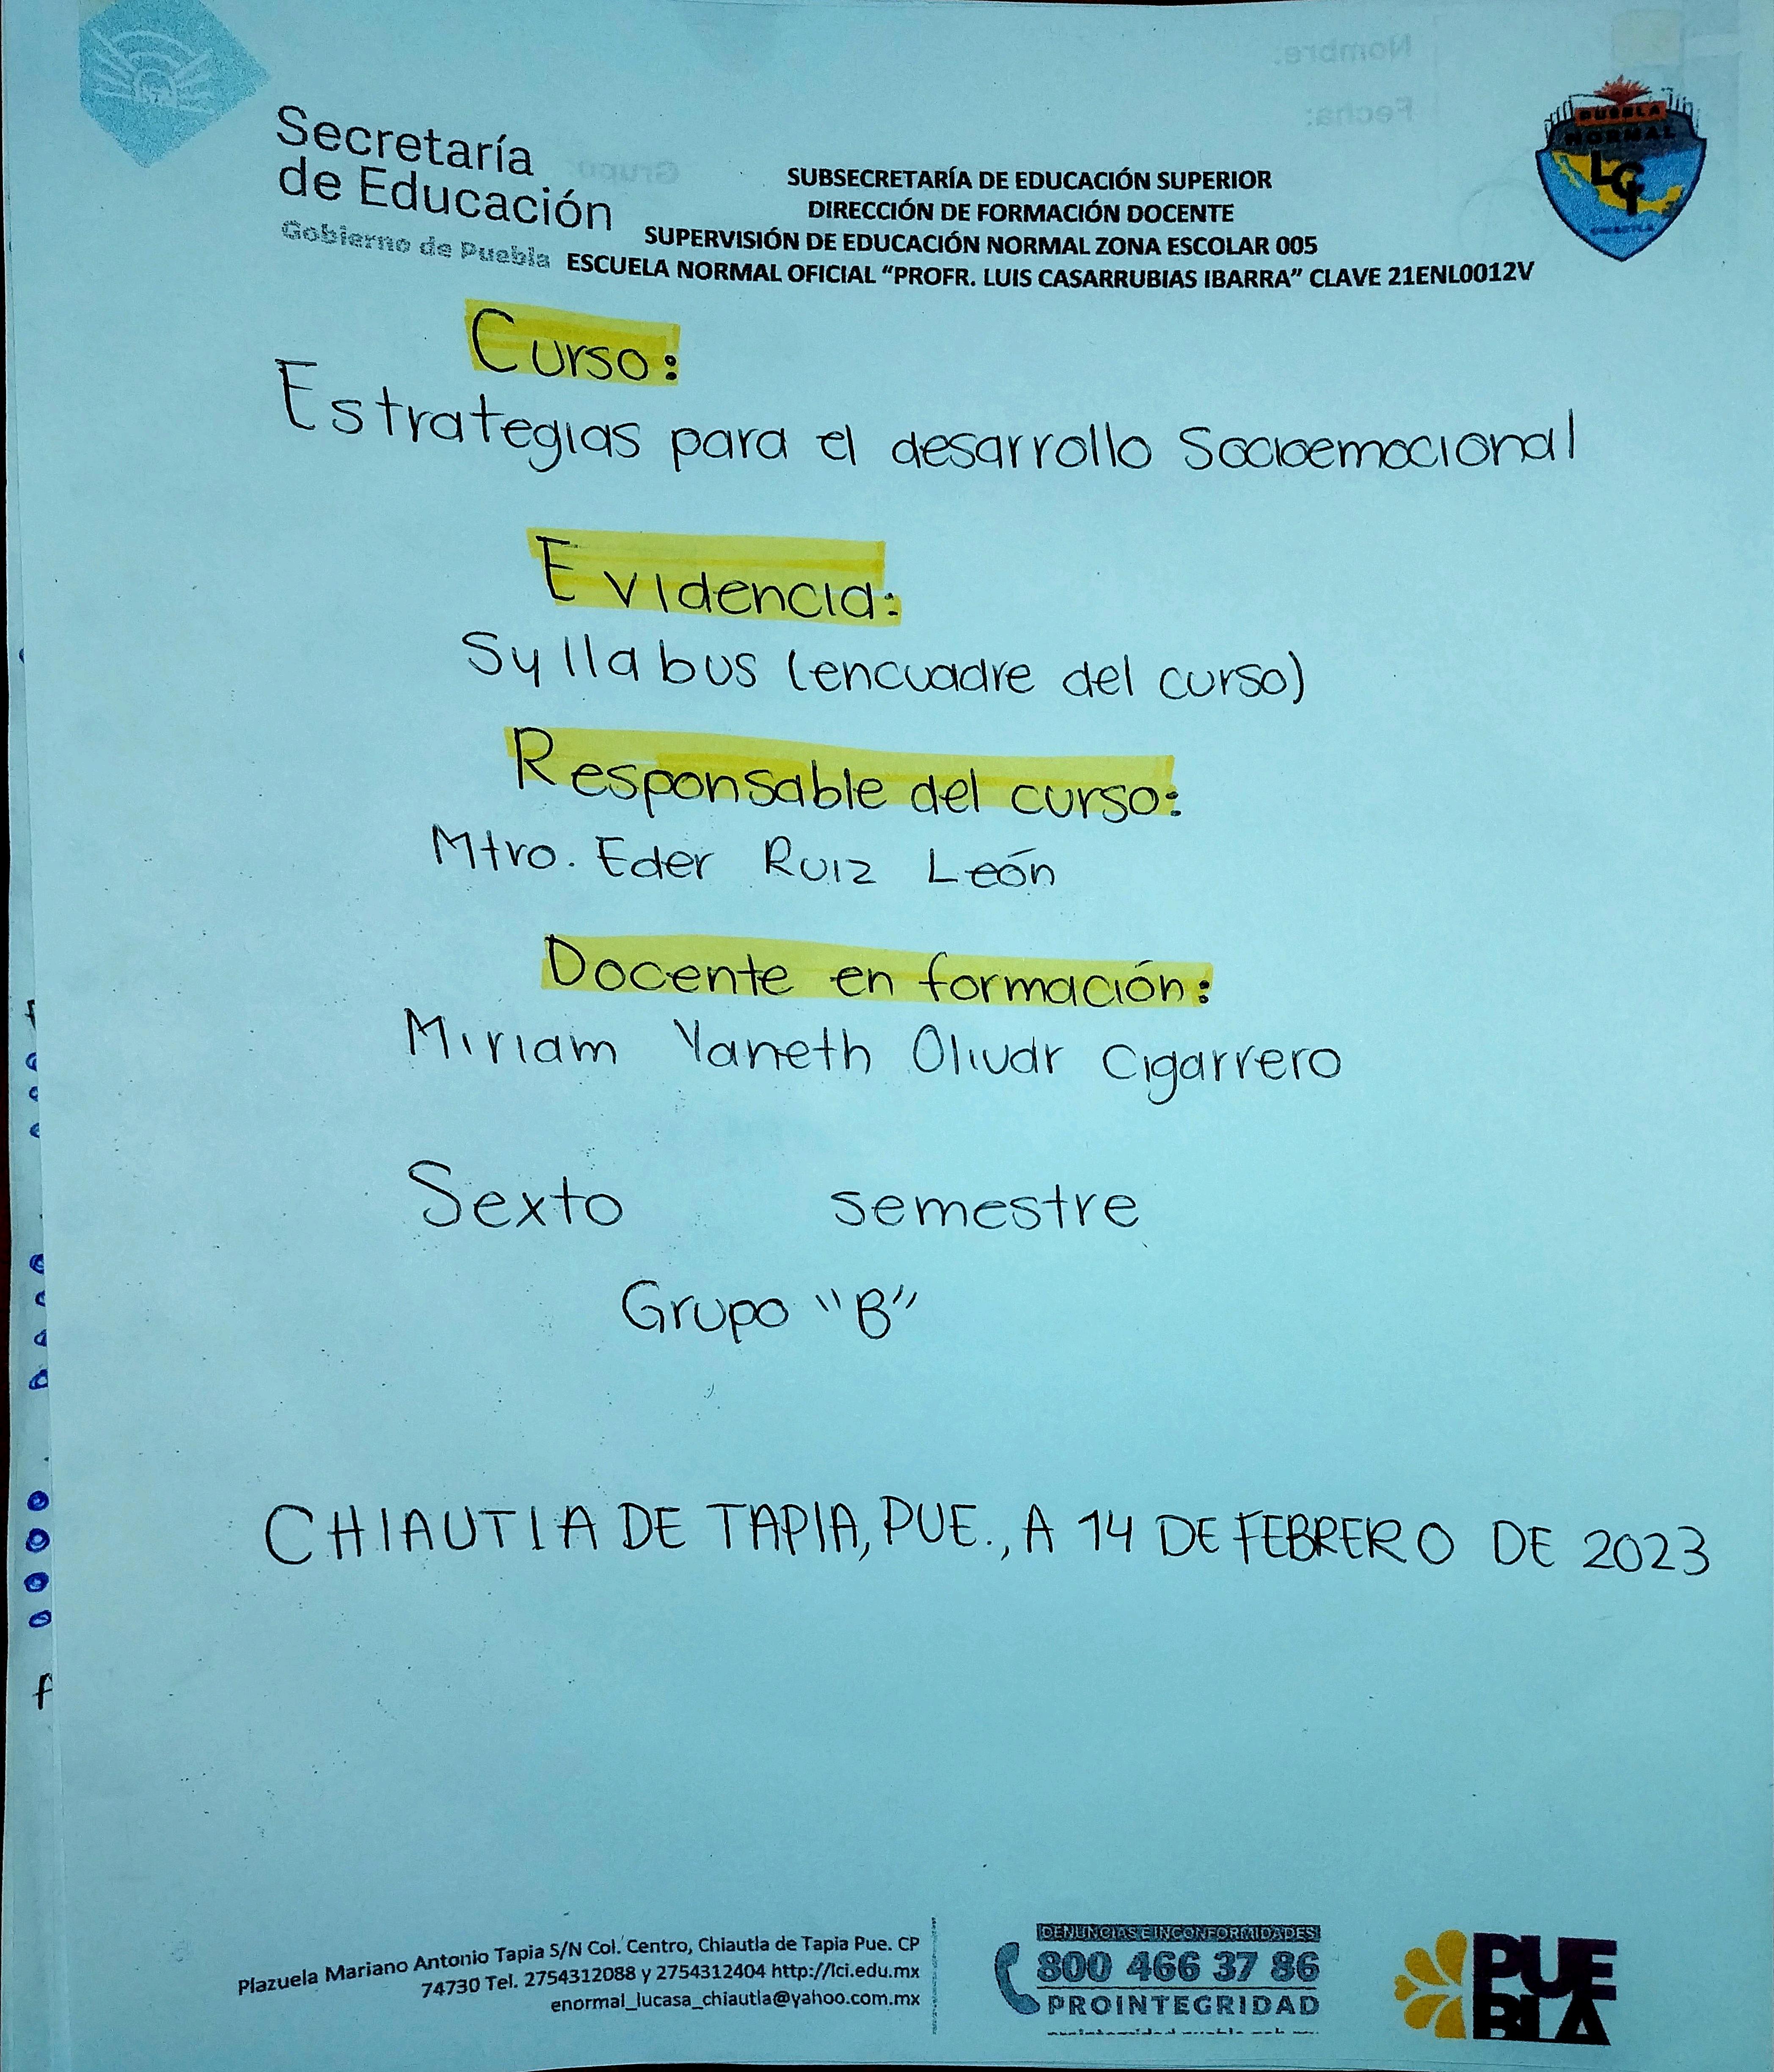 Secretaría
de Educación
Gobierno de Puebla
SUBSECRETARÍA DE EDUCACIÓN SUPERIOR
DIRECCIÓN DE FORMACIÓN DOCENTE
SUPERVISIÓN DE EDUCACIÓN NORMAL ZONA ESCOLAR 005
ESCUELA NORMAL OFICIAL “PROFR. LUIS CASARRUBIAS IBARRA” CLAVE 21ENL0012V
PUEBLA
NORMAL
LCI
Nombre:
Fecha:
Grupo
Curso:
Estrategias para el desarrollo Socioemocional
Evidencia:
Syllabus (encuadre del curso)
Responsable del curso:
Mtro. Eder Ruiz León
Docente en formación:
Miriam Yaneth Olivar Cigarrero
Sexto semestre
Grupo "B"
CHIAUTLA DE TAPIA, PUE., A 14 DE FEBRERO DE 2023
Plazuela Mariano Antonio Tapia S/N Col. Centro, Chiautla de Tapia Pue. CP
74730 Tel. 2754312088 y 2754312404 http://lci.edu.mx
enormal_lucasa_chiautla@yahoo.com.mx
DENUNCIAS E INCONFORMIDADES
800 466 37 86
PROINTEGRIDAD
PUE
BLA